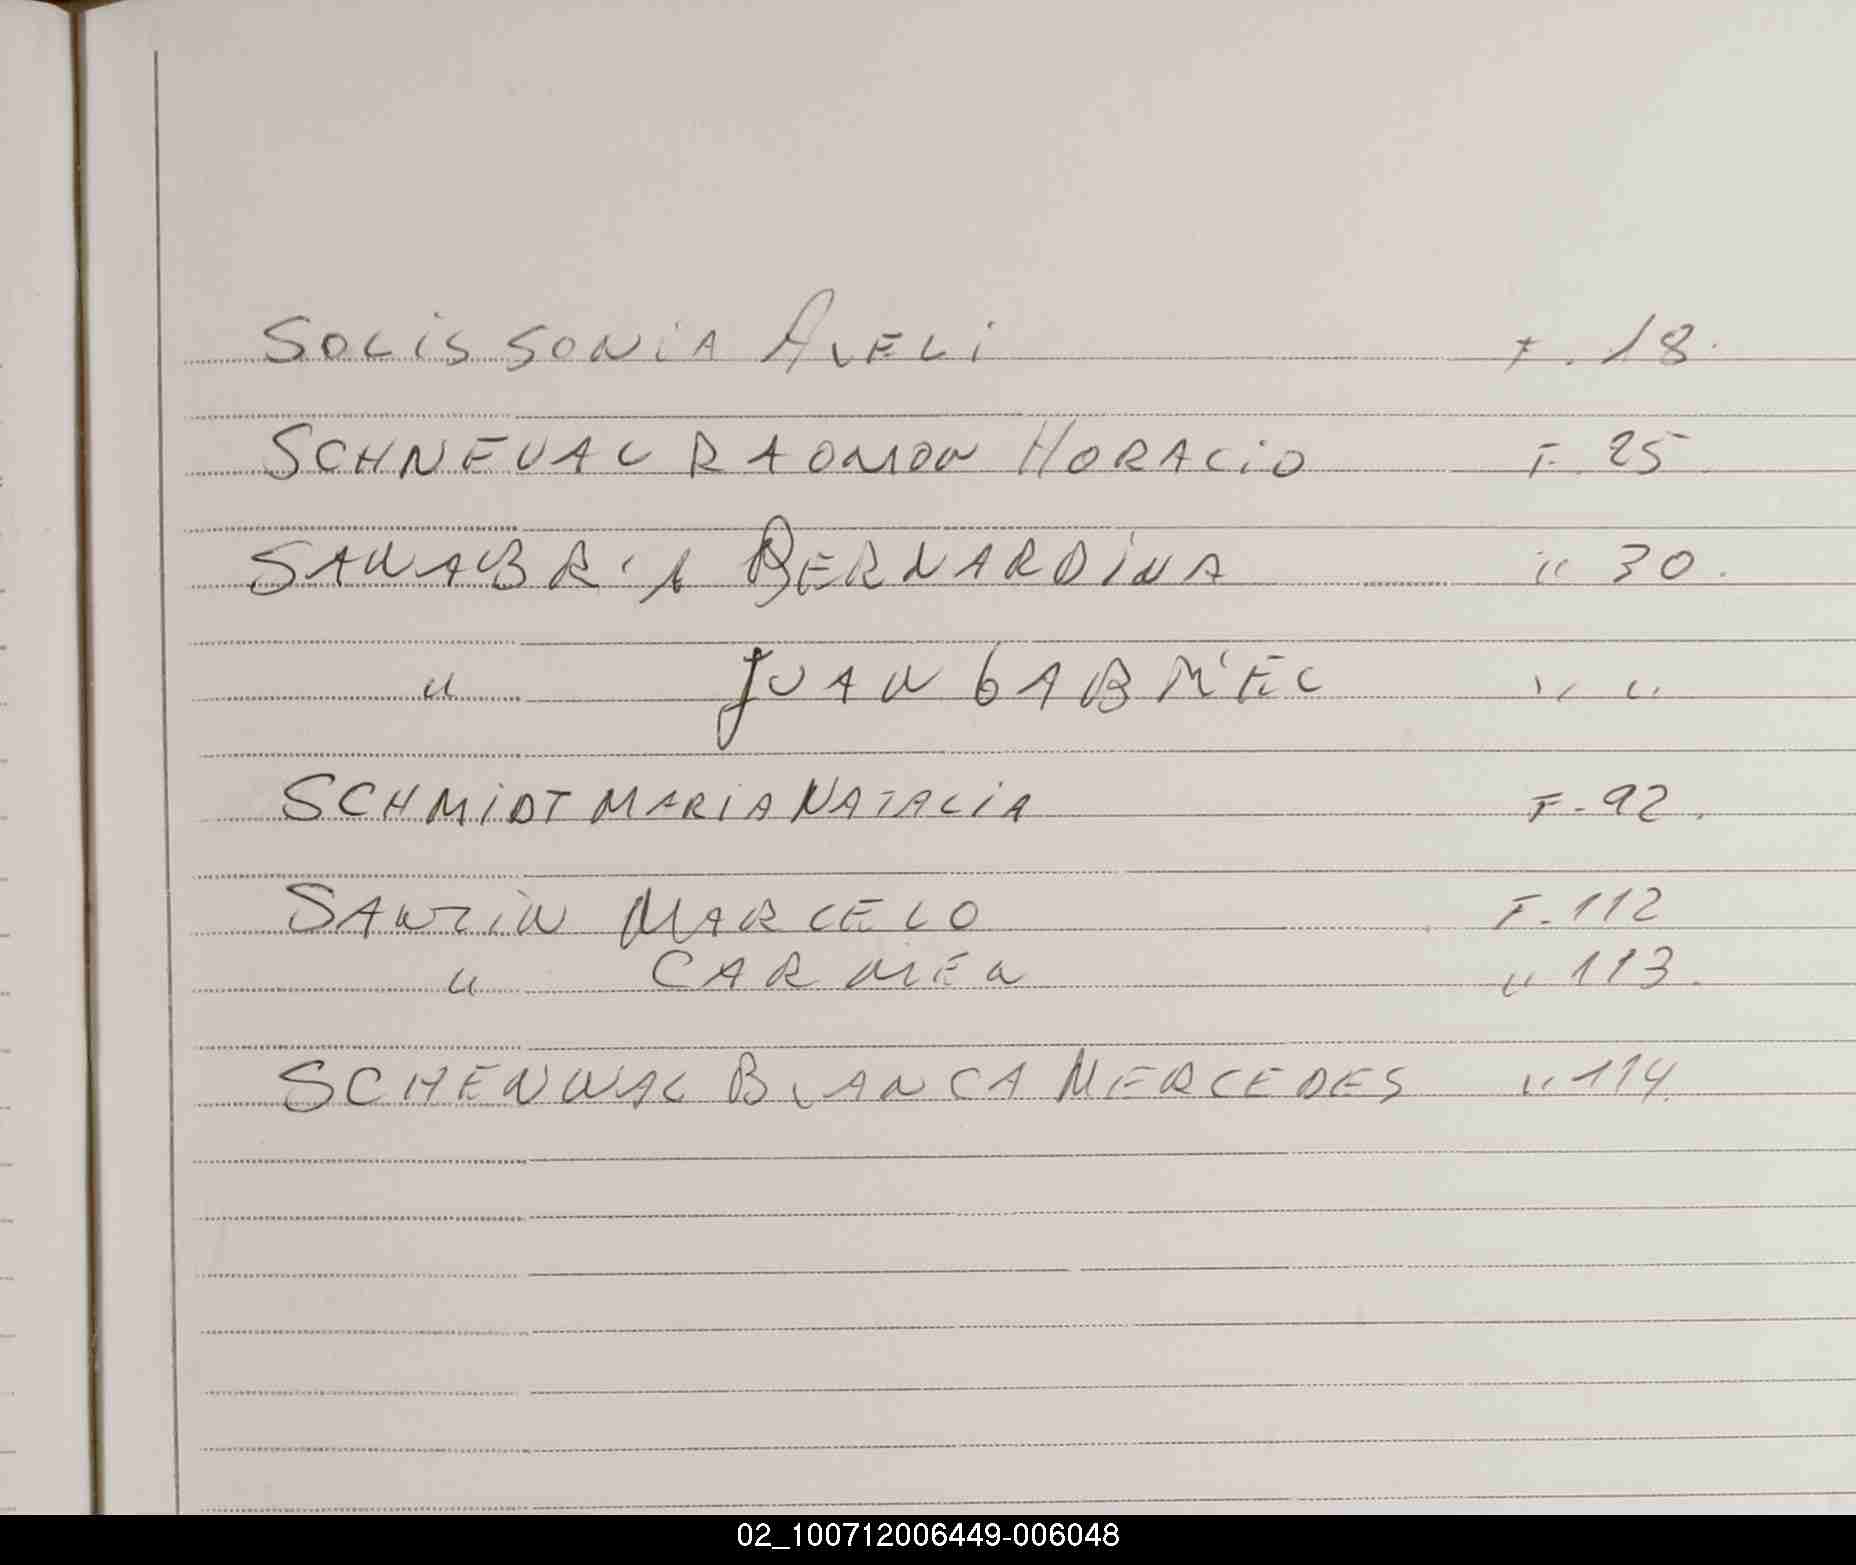 SOLIS SONIA AVELI F. 18.
SCHNEVAL RAOMON HORACIO F. 25.
SANABRIA BERNARDINA " 30.
" JUAN GABRIEL " "
SCHMIDT MARIA NATALIA F. 92.
SANZIN MARCELO F. 112
" CARMEN " 113.
SCHENWAL BLANCA MERCEDES " 114.
02_100712006449-006048